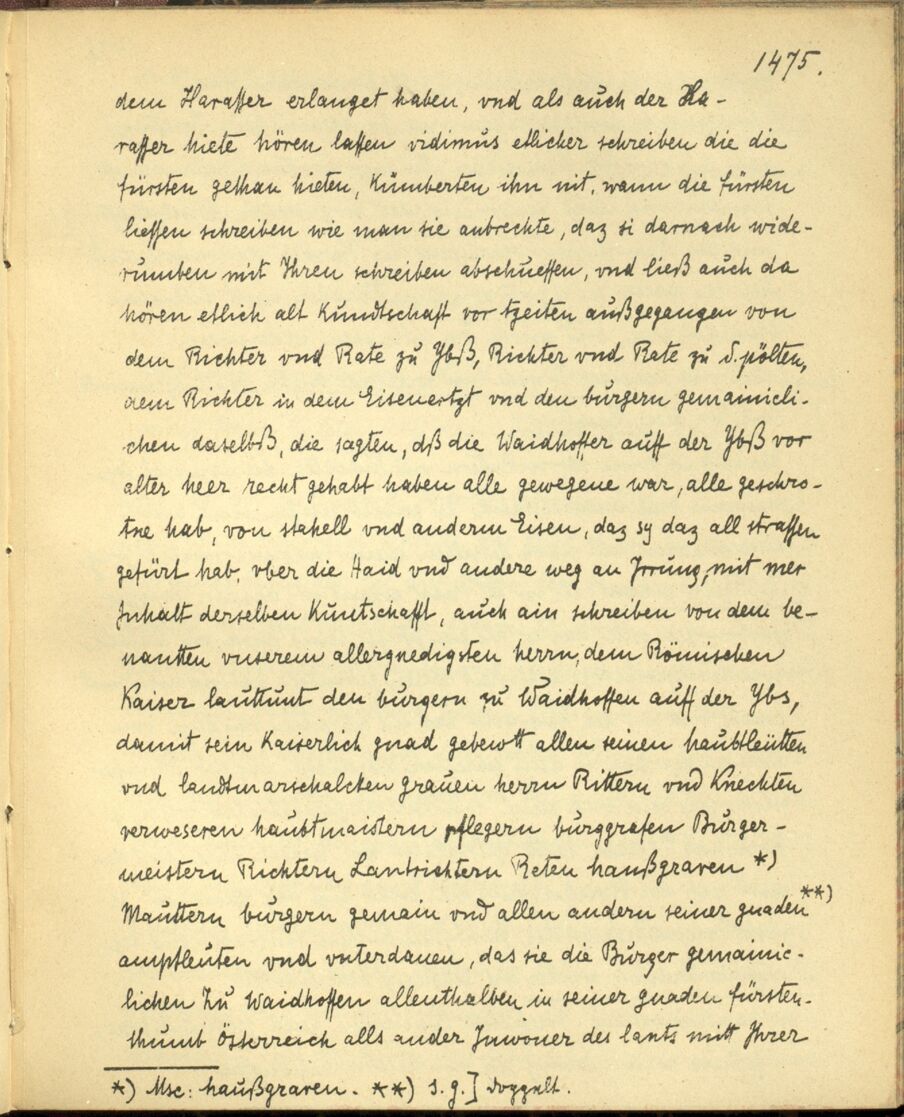 1475.
dem Harasser erlanget haben, vnd als auch der Ha-
rasser hiete hören lassen vidimus etlicher schreiben die die
fürsten gethan hieten, kümberten ihn nit, wann die fürsten
liessen schreiben wie man sie anbrechte, daz si darnach wide-
rumben mit Ihren schreiben abschuessen, vnd ließ auch da
hören etlich alt Kundtschaft vor tzeiten außgegangen von
dem Richter vnd Rate zu Ybß, Richter vnd Rate zu S. pölten,
dem Richter in dem Eisenertzt vnd den burgern gemainicli-
chen daselbß, die sagten, dß die Waidhoffer auff der Ybß vor
alter heer recht gehabt haben alle gewegene war, alle geschro-
tne hab, von stahell vnd anderm Eisen, daz sy daz all strassen
gefürt hab, vber die Haid vnd andere weg an Irrung, mit mer
Inhalt derselben Kuntschafft, auch ain schreiben von dem be-
nantten vnserem allergnedigsten herrn, dem Römischen
Kaiser lauttunt den burgern zu Waidhoffen auff der Ybs,
damit sein Kaiserlich gnad gebewtt allen seinen haubtleütten
vnd landtmarschalcken grauen herrn Rittern vnd Knechten
verweseren haubtmaistern pflegern burggrafen Burger-
meistern Richtern Lantrichtern Reten haußgraven *)
Mauttern burgern gemain vnd allen andern seiner gnaden **)
amptleuten vnd vnterdanen, das sie die Burger gemainic-
lichen zu Waidhoffen allenthalben in seiner gnaden fürsten-
thumb Österreich alls ander Inwoner des lants mitt Ihrer
*) Msc: haußgraven. **) s. g.] doppelt.